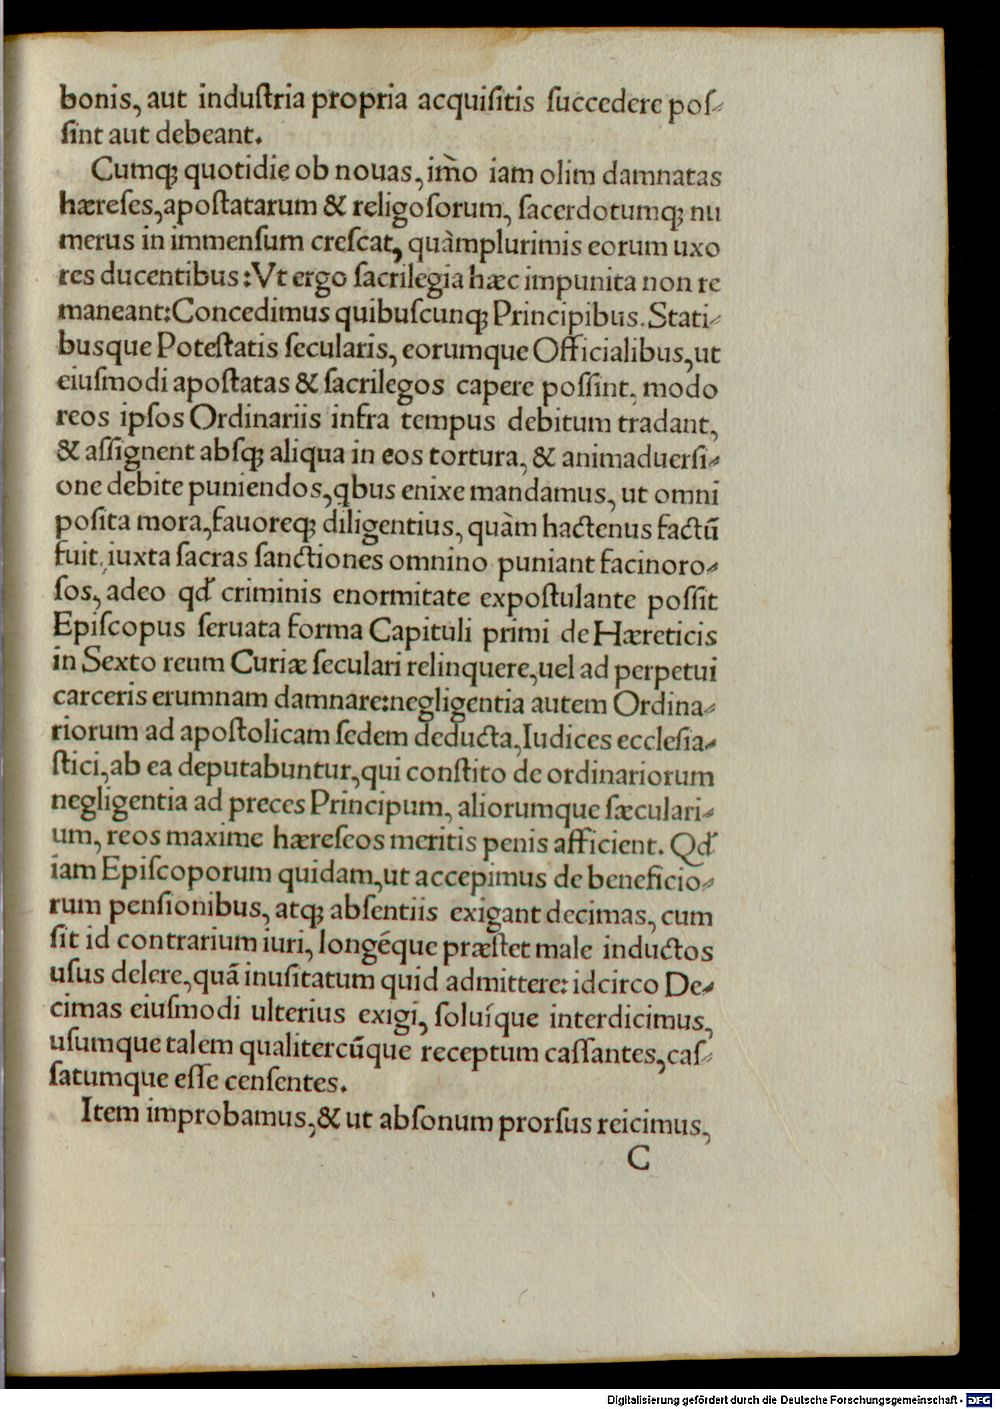 bonis, aut induſtria propria acquiſitis ſuccedere poſ⸗
ſint aut debeant.
Cumq; quotidie ob nouas, im̃o iam olim damnatas
hæreſes, apoſtatarum & religoſorum, ſacerdotumq; nu
merus in immenſum creſcat, quàmplurimis eorum uxo
res ducentibus: Vt ergo ſacrilegia hæc impunita non re
maneant: Concedimus quibuſcunq; Principibus. Stati⸗
busque Poteſtatis ſecularis, eorumque Officialibus, ut
eiuſmodi apoſtatas & ſacrilegos capere poſſint, modo
reos ipſos Ordinariis infra tempus debitum tradant,
& aſſignent abſq; aliqua in eos tortura, & animaduerſi⸗
one debite puniendos, qbus enixe mandamus, ut omni
poſita mora, fauoreq; diligentius, quàm hactenus factũ
fuit, iuxta ſacras ſanctiones omnino puniant facinoro⸗
ſos, adeo qd̓ criminis enormitate expoſtulante poſſit
Epiſcopus ſeruata forma Capituli primi de Hæreticis
in Sexto reum Curiæ ſeculari relinquere, uel ad perpetui
carceris erumnam damnare: negligentia autem Ordina⸗
riorum ad apoſtolicam ſedem deducta, Iudices eccleſia⸗
ſtici, ab ea deputabuntur, qui conſtito de ordinariorum
negligentia ad preces Principum, aliorumque ſæculari⸗
um, reos maxime hæreſeos meritis penis afficient. Qd̓
iam Epiſcoporum quidam, ut accepimus de beneficio⸗
rum penſionibus, atq; abſentiis exigant decimas, cum
ſit id contrarium iuri, longéque præſtet male inductos
uſus delere, quã inuſitatum quid admittere: idcirco De⸗
cimas eiuſmodi ulterius exigi, ſoluíque interdicimus,
uſumque talem qualitercũque receptum caſſantes, caſ⸗
ſatumque eſſe cenſentes.
Item improbamus, & ut abſonum prorſus reicimus,
C
Digitalisierung gefördert durch die Deutsche Forschungsgemeinschaft - DFG